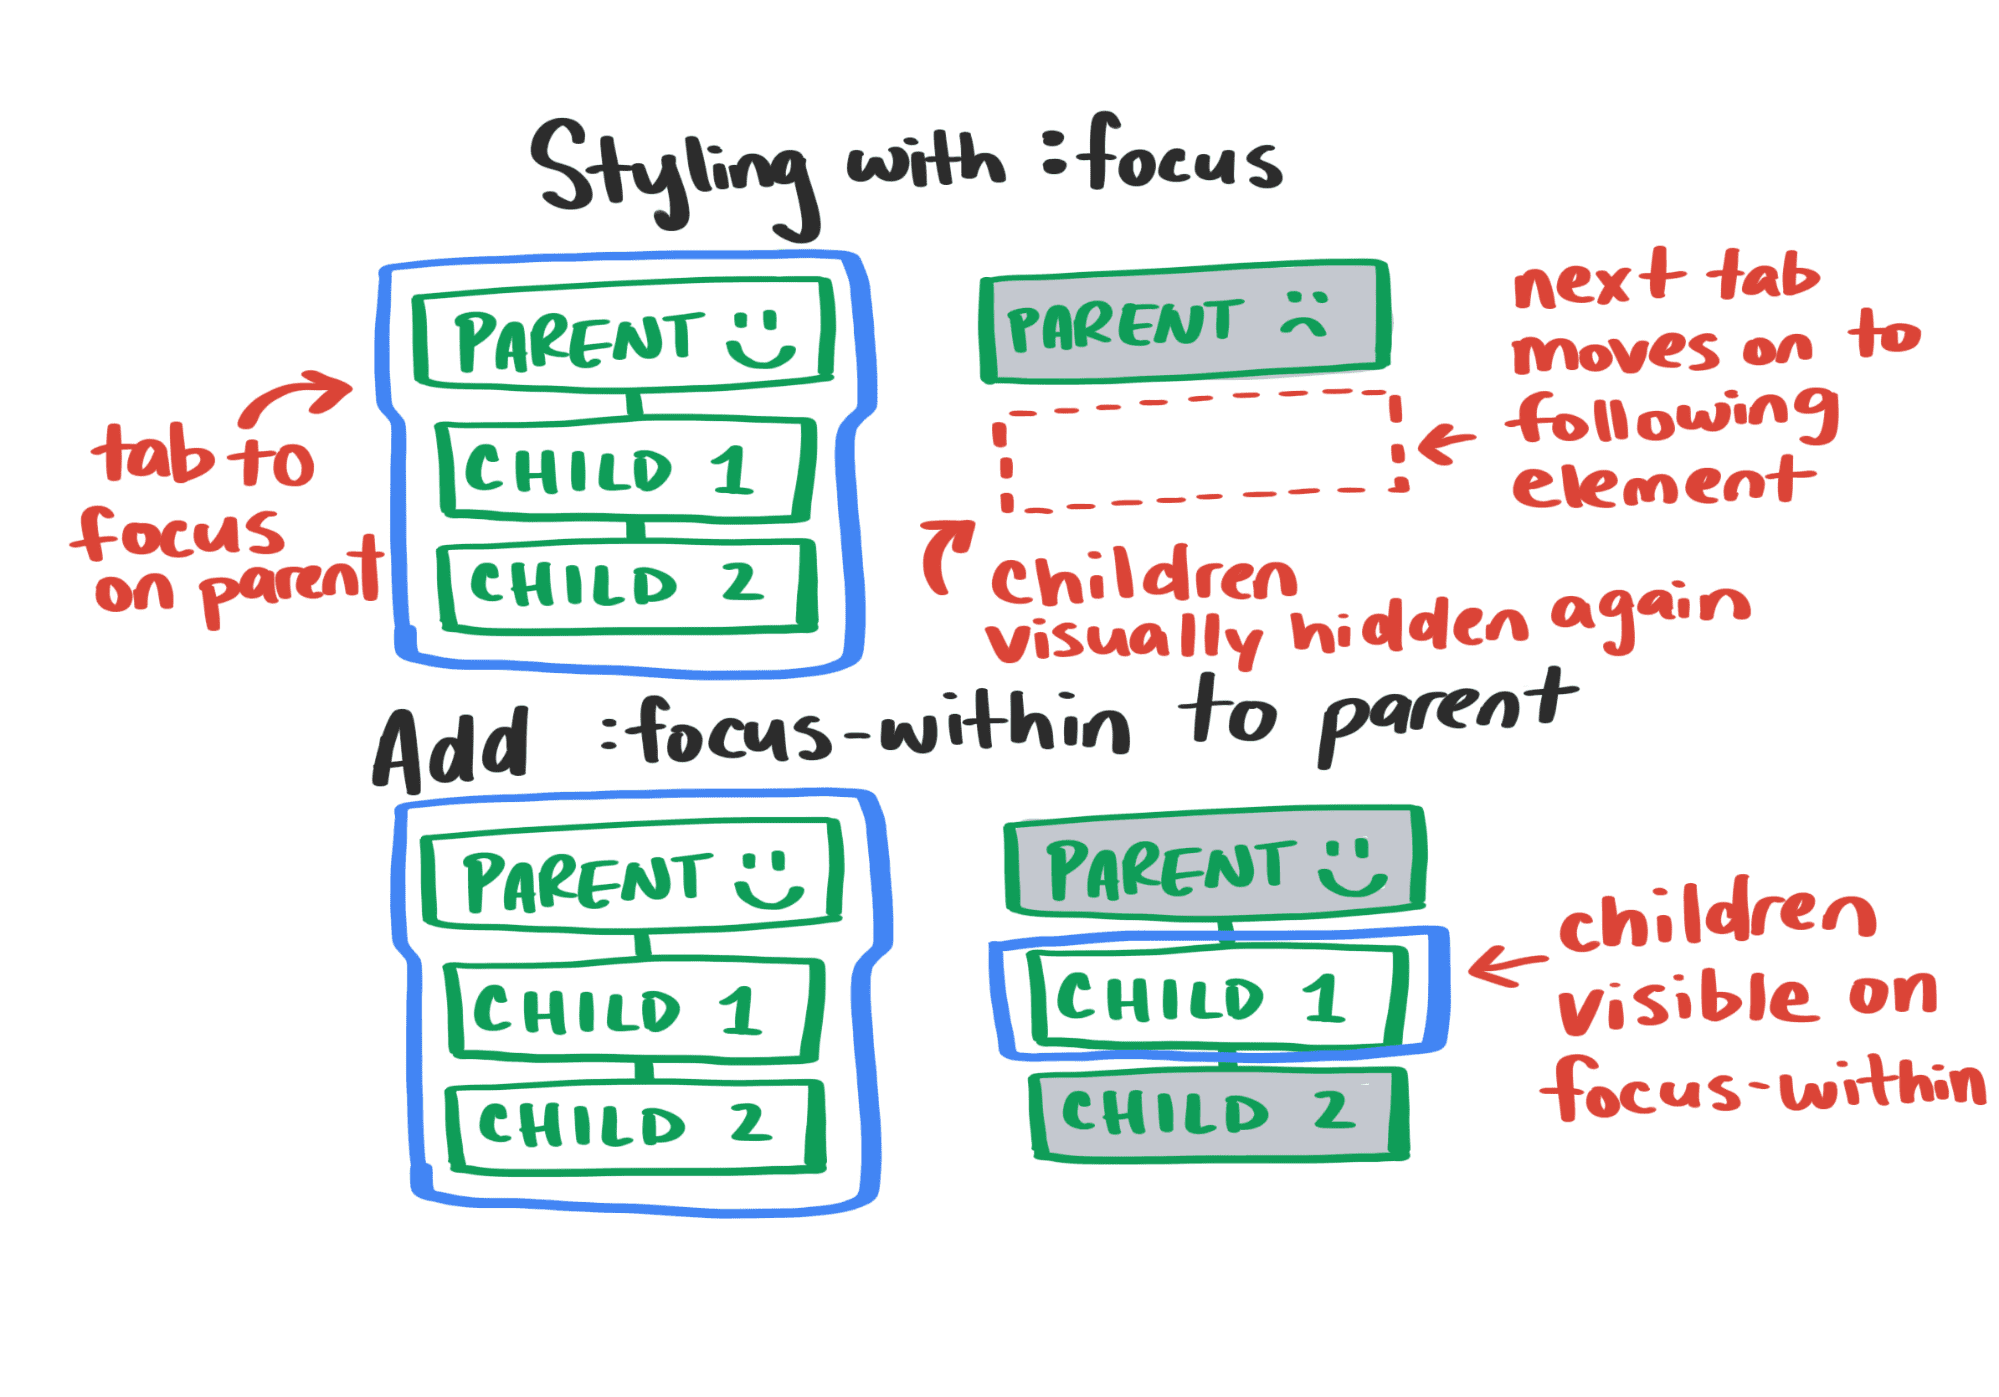 Styling with :focus
tab to
focus
on parent
PARENT
CHILD 1
CHILD 2
PARENT
next tab
moves on to
following
element
children
visually hidden again
Add :focus-within to parent
PARENT
CHILD 1
CHILD 2
PARENT
CHILD 1
CHILD 2
children
visible on
focus-within